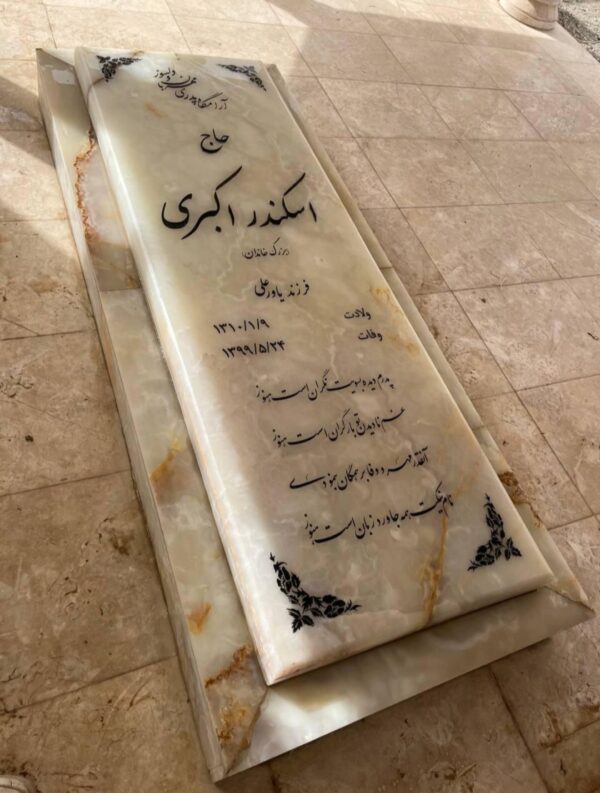 آرامگاه پدری مهربان و دلسوز
حاج
اسکندر اکبری
(بزرگ خاندان)
فرزند یاورعلی
ولادت ۱۳۱۰/۱/۹
وفات ۱۳۹۹/۵/۲۴
پدرم دیده بسویت نگران است هنوز
غم نادیدن تو بار گران است هنوز
آنقدر مهر و وفا بر همگان بنمودی
نام نیکت همه جا ورد زبان است هنوز